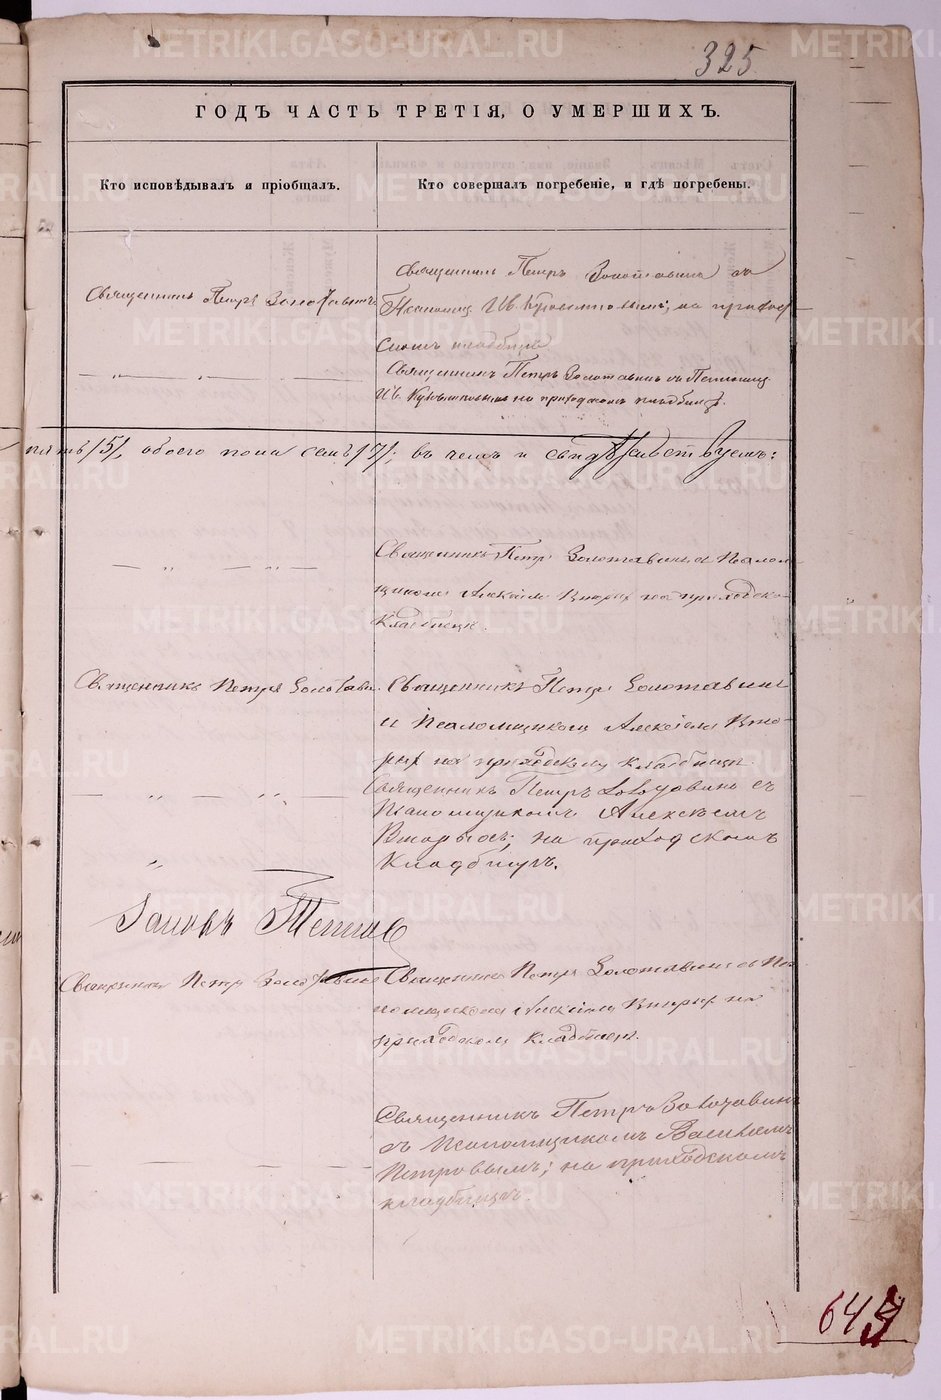 325
ГОДЪ ЧАСТЬ ТРЕТІЯ, О УМЕРШИХЪ.
Кто исповѣдывалъ и пріобщалъ.
Кто совершалъ погребеніе, и гдѣ погребены.
Священникъ Петръ Золотавинъ
Священникъ Петръ Золотавинъ съ
на приход-
скомъ кладбищѣ
Священникъ Петръ Золотавинъ съ
на приходскомъ кладбищѣ.
пять /5/, обоего пола семь /7/; въ чемъ и свидѣтельствуемъ:
Священникъ Петръ Золотавинъ и Псалом-
щикомъ Алексѣемъ Вторых на приходско-
кладбище.
Священникъ Петръ Золотавин
Священникъ Петръ Золотавинъ
и Псаломщикомъ Алексѣемъ Вто-
рых на приходскому кладбище.
Священникъ Петръ Золотавинъ съ
Псаломщикомъ Алексѣемъ
Вторыхъ; на приходскомъ
Кладбищѣ.
Священникъ Петръ Золотавинъ
Священникъ Петръ Золотавинъ съ Пса-
ломщикомъ Алексѣемъ Вторых на
приходском кладбище.
Священникъ Петръ Золотавинъ
съ Псаломщикомъ Василіемъ
Петровымъ; на приходскомъ
кладбищѣ.
METRIKI.GASO-URAL.RU